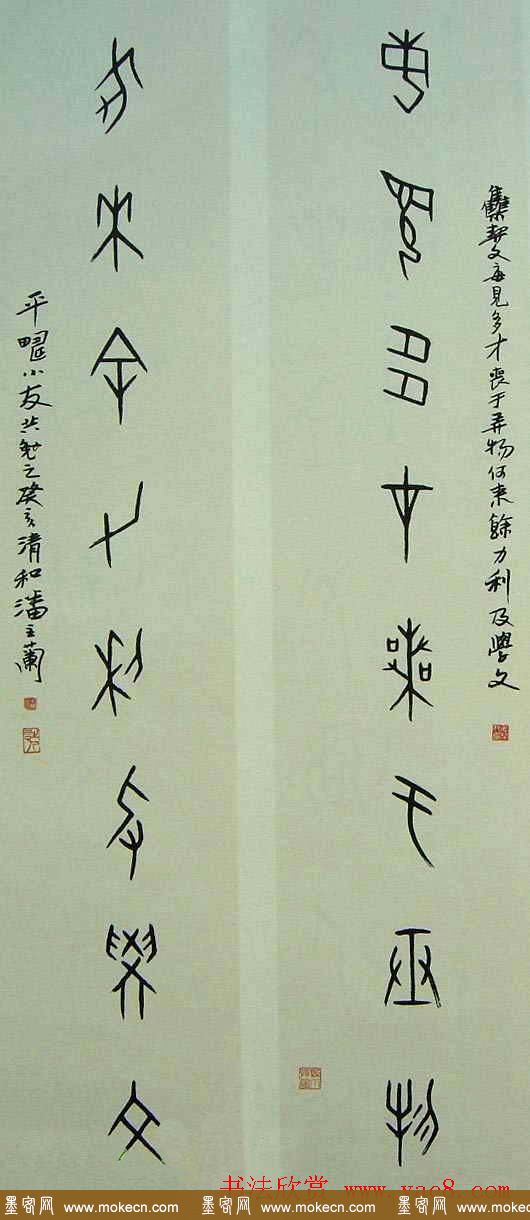 每見多才喪于弄物
何來餘力利及學文
集契文每見多才喪于弄物何來餘力利及學文
平曜小友共勉之癸亥清和潘主蘭
书法欣赏 www.yac8.com
墨客网 www.mokecn.com 墨客网 www.mokecn.com 墨客网 www.mokecn.com